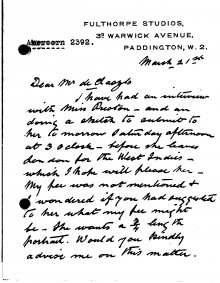 FULTHORPE STUDIOS,
3ª WARWICK AVENUE,
PADDINGTON, W. 2.
Abercorn 2392.
March 21st
Dear Mr de
I have had an interview
with Miss Preston - and am
doing a sketch to submit to
her to morrow Saturday afternoon
at 3 oclock - before she leaves
London for the West Indies -
which I hope will please her -
My fee was not mentioned &
I wondered if you had suggested
to her what my fee might
be - She wants a ¾ length
portrait. Would you kindly
advise me on this matter.